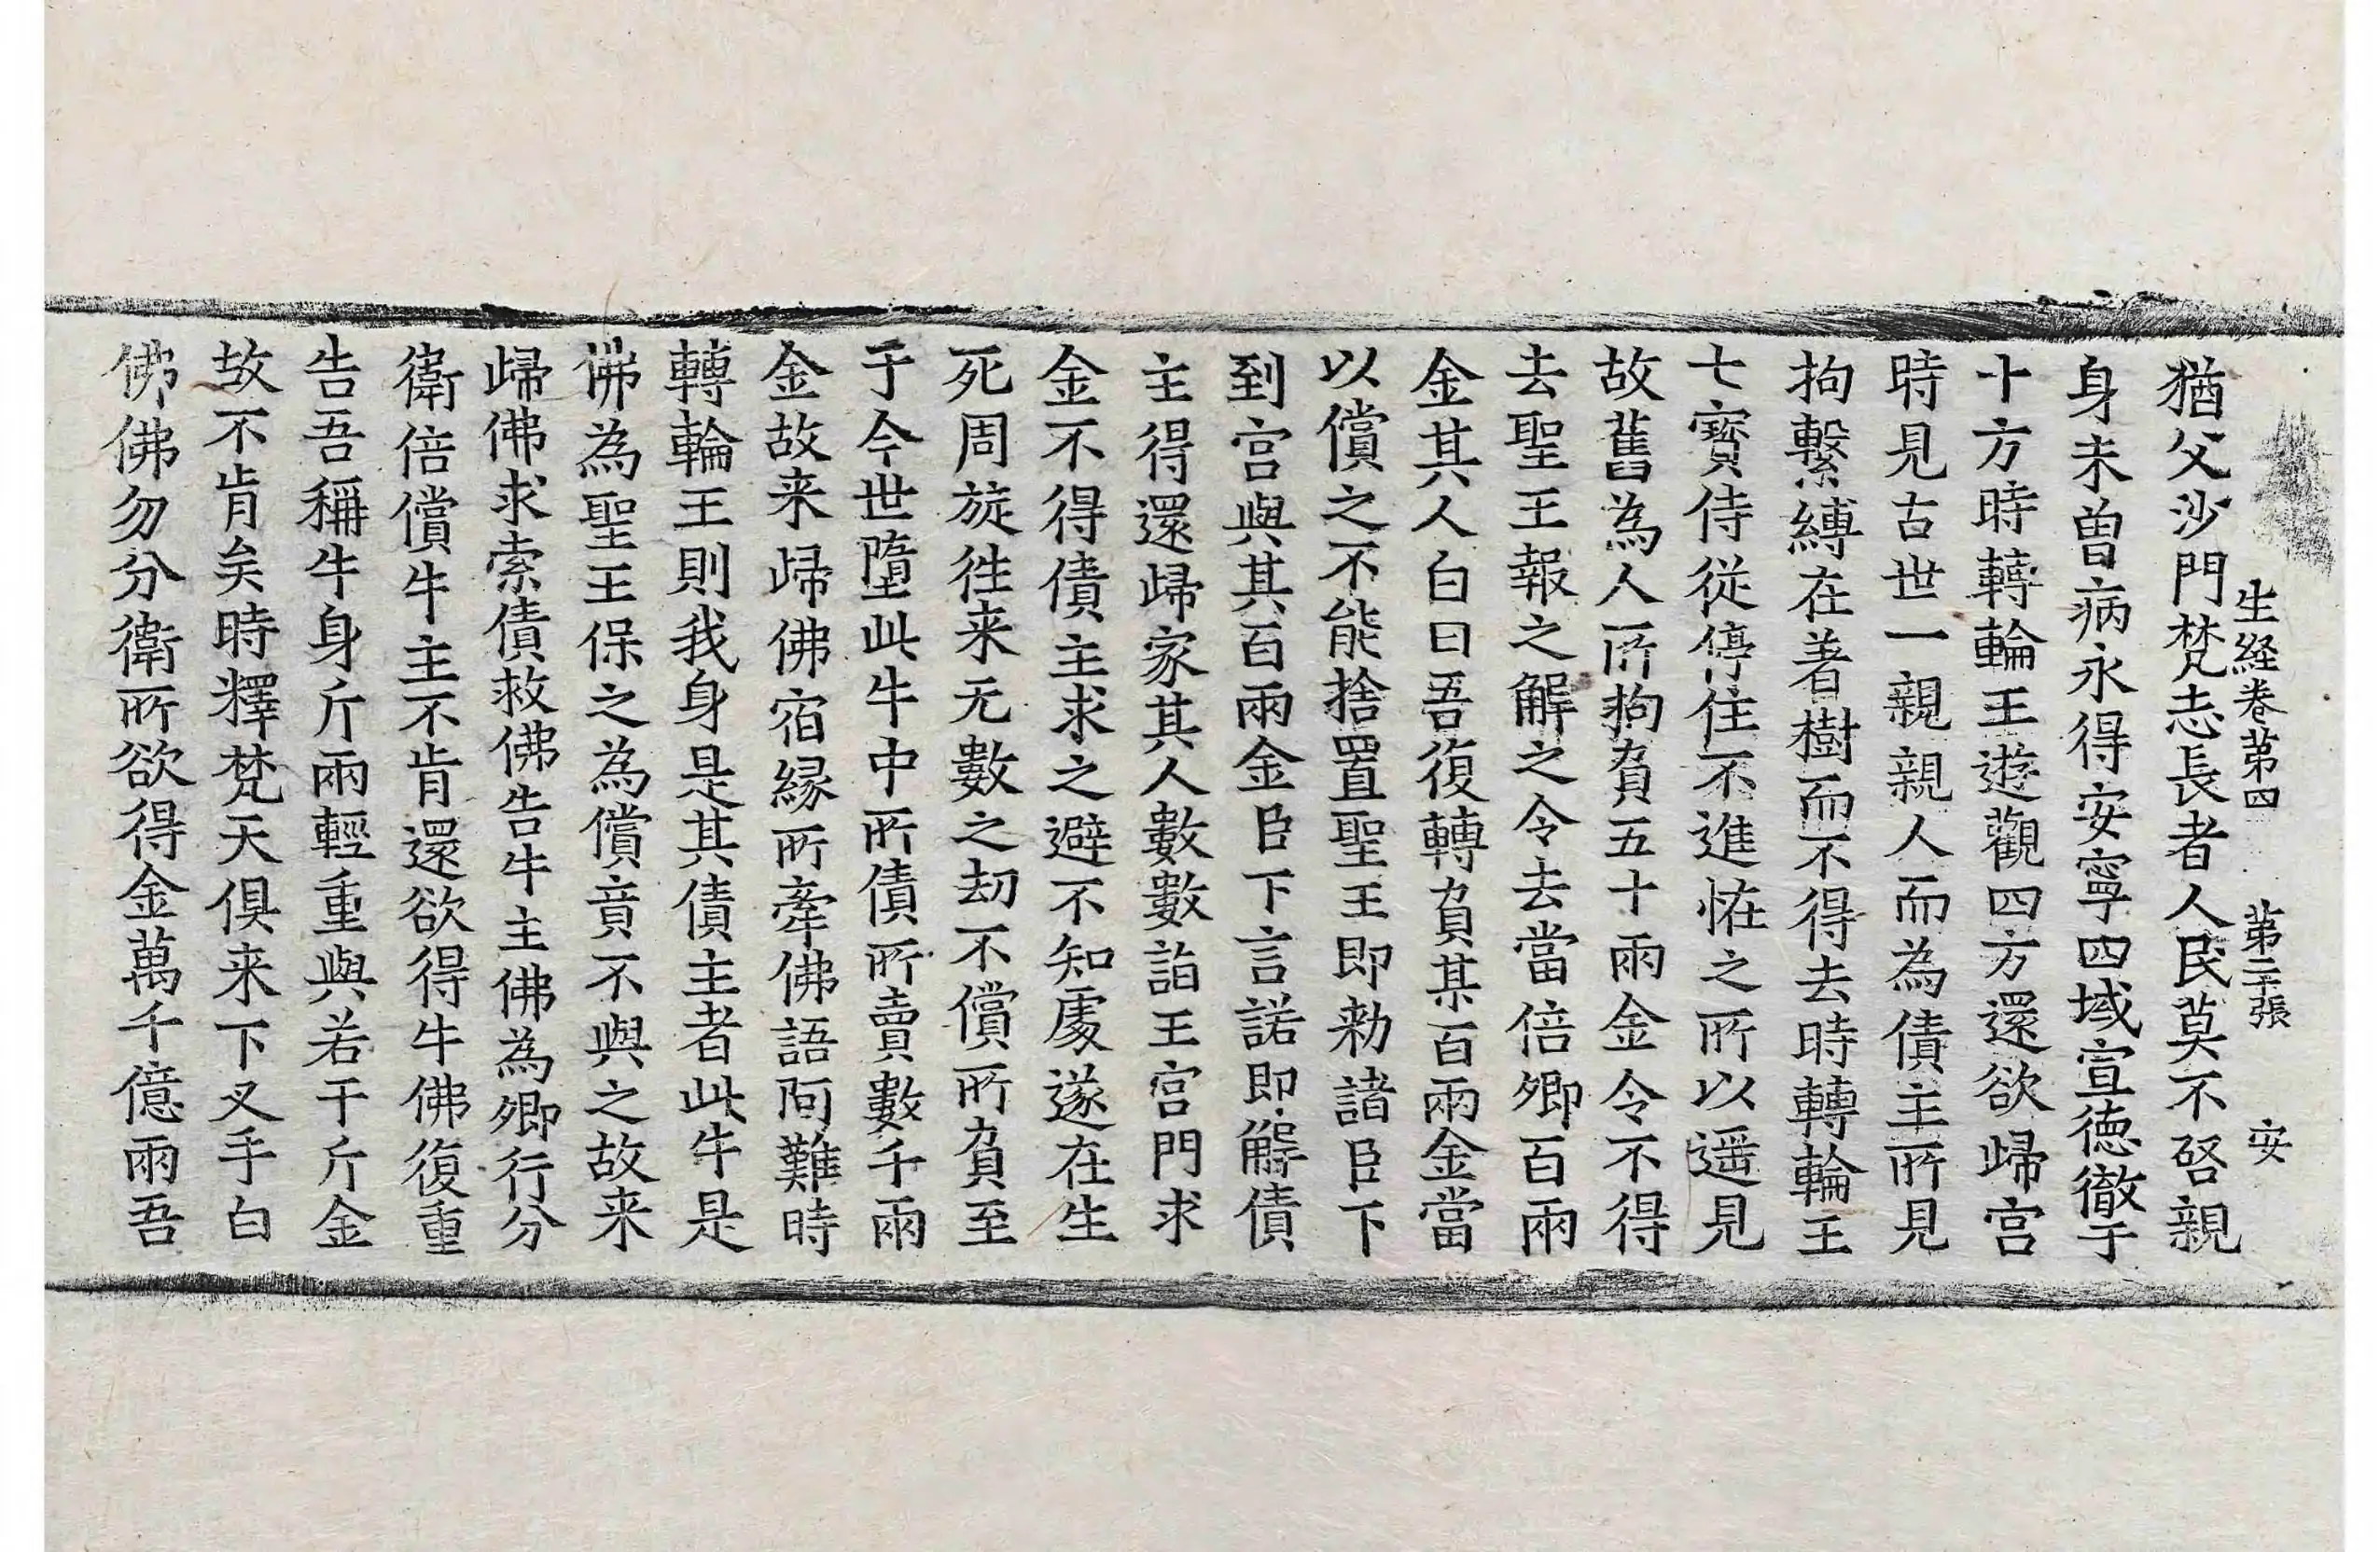 生経卷第四 第二十張 安
猶父沙門梵志長者人民莫不啓親
身未曽病永得安寧四域宣徳徹于
十方時轉輪王遊觀四方還欲歸宫
時見古世一親親人而為債主所見
拘繫縛在著樹而不得去時轉輪王
七寶侍從停住不進恠之所以遥見
故舊為人所拘負五十兩金令不得
去聖王報之解之令去當倍卿百兩
金其人白曰吾復轉負某百兩金當
以償之不能捨置聖王即勑諸臣下
到宫與其百兩金臣下言諾即解債
主得還歸家其人數數詣王宫門求
金不得債主求之避不知處遂在生
死周旋徃来无數之劫不償所負至
于今世墮此牛中所債所賣數千兩
金故来歸佛宿縁所牽佛語阿難時
轉輪王則我身是其債主者此牛是
佛為聖王保之為償竟不與之故来
歸佛求索債救佛告牛主佛為卿行分
衛倍償牛主不肯還欲得牛佛復重
告吾稱牛身斤兩輕重與若干斤金
故不肯矣時釋梵天俱来下叉手白
佛佛勿分衛所欲得金萬千億兩吾